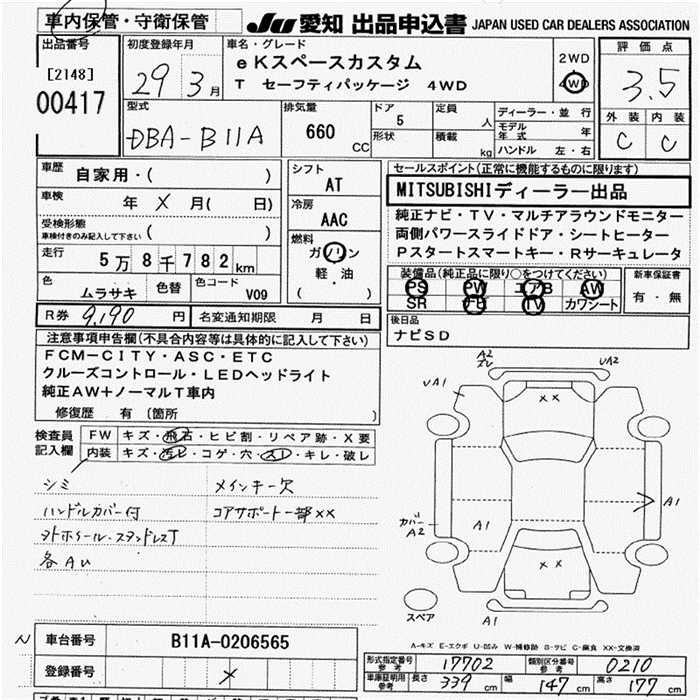 車内保管・守衛保管 JU 愛知 出品申込書 JAPAN USED CAR DEALERS ASSOCIATION
出品番号
[2148]
00417
初度登録年月
29年 3月
車名・グレード
eKスペースカスタム
T セーフティパッケージ 4WD
2WD
4WD
評価点
3.5
外装 内装
C C
型式
DBA-B11A
排気量
660 CC
ドア
5
形状
定員
人
積載
kg
ディーラー・並行
モデル年式 年
ハンドル 左・右
車歴
自家用・( )
車検 年 X 月( 日)
受検形態
車検付きのみ記入して下さい ( )
走行 5万8千782km
色 ムラサキ 色替 色コード V09
シフト
AT
冷房
AAC
燃料
ガソリン
軽・油
( )
セールスポイント(正常に機能するものに限ります)
MITSUBISHIディーラー出品
純正ナビ・TV・マルチアラウンドモニター
両側パワースライドドア・シートヒーター
Pスタートスマートキー・Rサーキュレータ
装備品(純正品に限り○をつけてください)
PS PW エアB AW
SR TV カワシート
新車保証書
有・無
R券 9,190円 名変通知期限 月 日
後日品
ナビSD
注意事項申告欄(不具合内容等は具体的に記入して下さい)
FCM-CITY・ASC・ETC
クルーズコントロール・LEDヘッドライト
純正AW+ノーマルT車内
修復歴 有 (箇所 )
検査員記入欄
FW キズ・飛石・ヒビ割・リペア跡・X要
内装 キズ・汚レ・コゲ・穴・スレ・キレ・破レ
シミ メインキー欠
ハンドルカバー付 コアサポート一部XX
外ホイール・スタッドレスT
各AU
A2
UA2
UA1
XX
A1
A1
カバー
A2
XX
スペア
A1
A-キズ E-エクボ U-凹み W-補修跡 S-サビ C-腐食 XX-交換済
車台番号 B11A-0206565
登録番号 X
型式指定番号 参考 17702 類別区分番号 参考 0210
車庫証明用 参考 長さ 339cm 幅 147cm 高さ 177cm